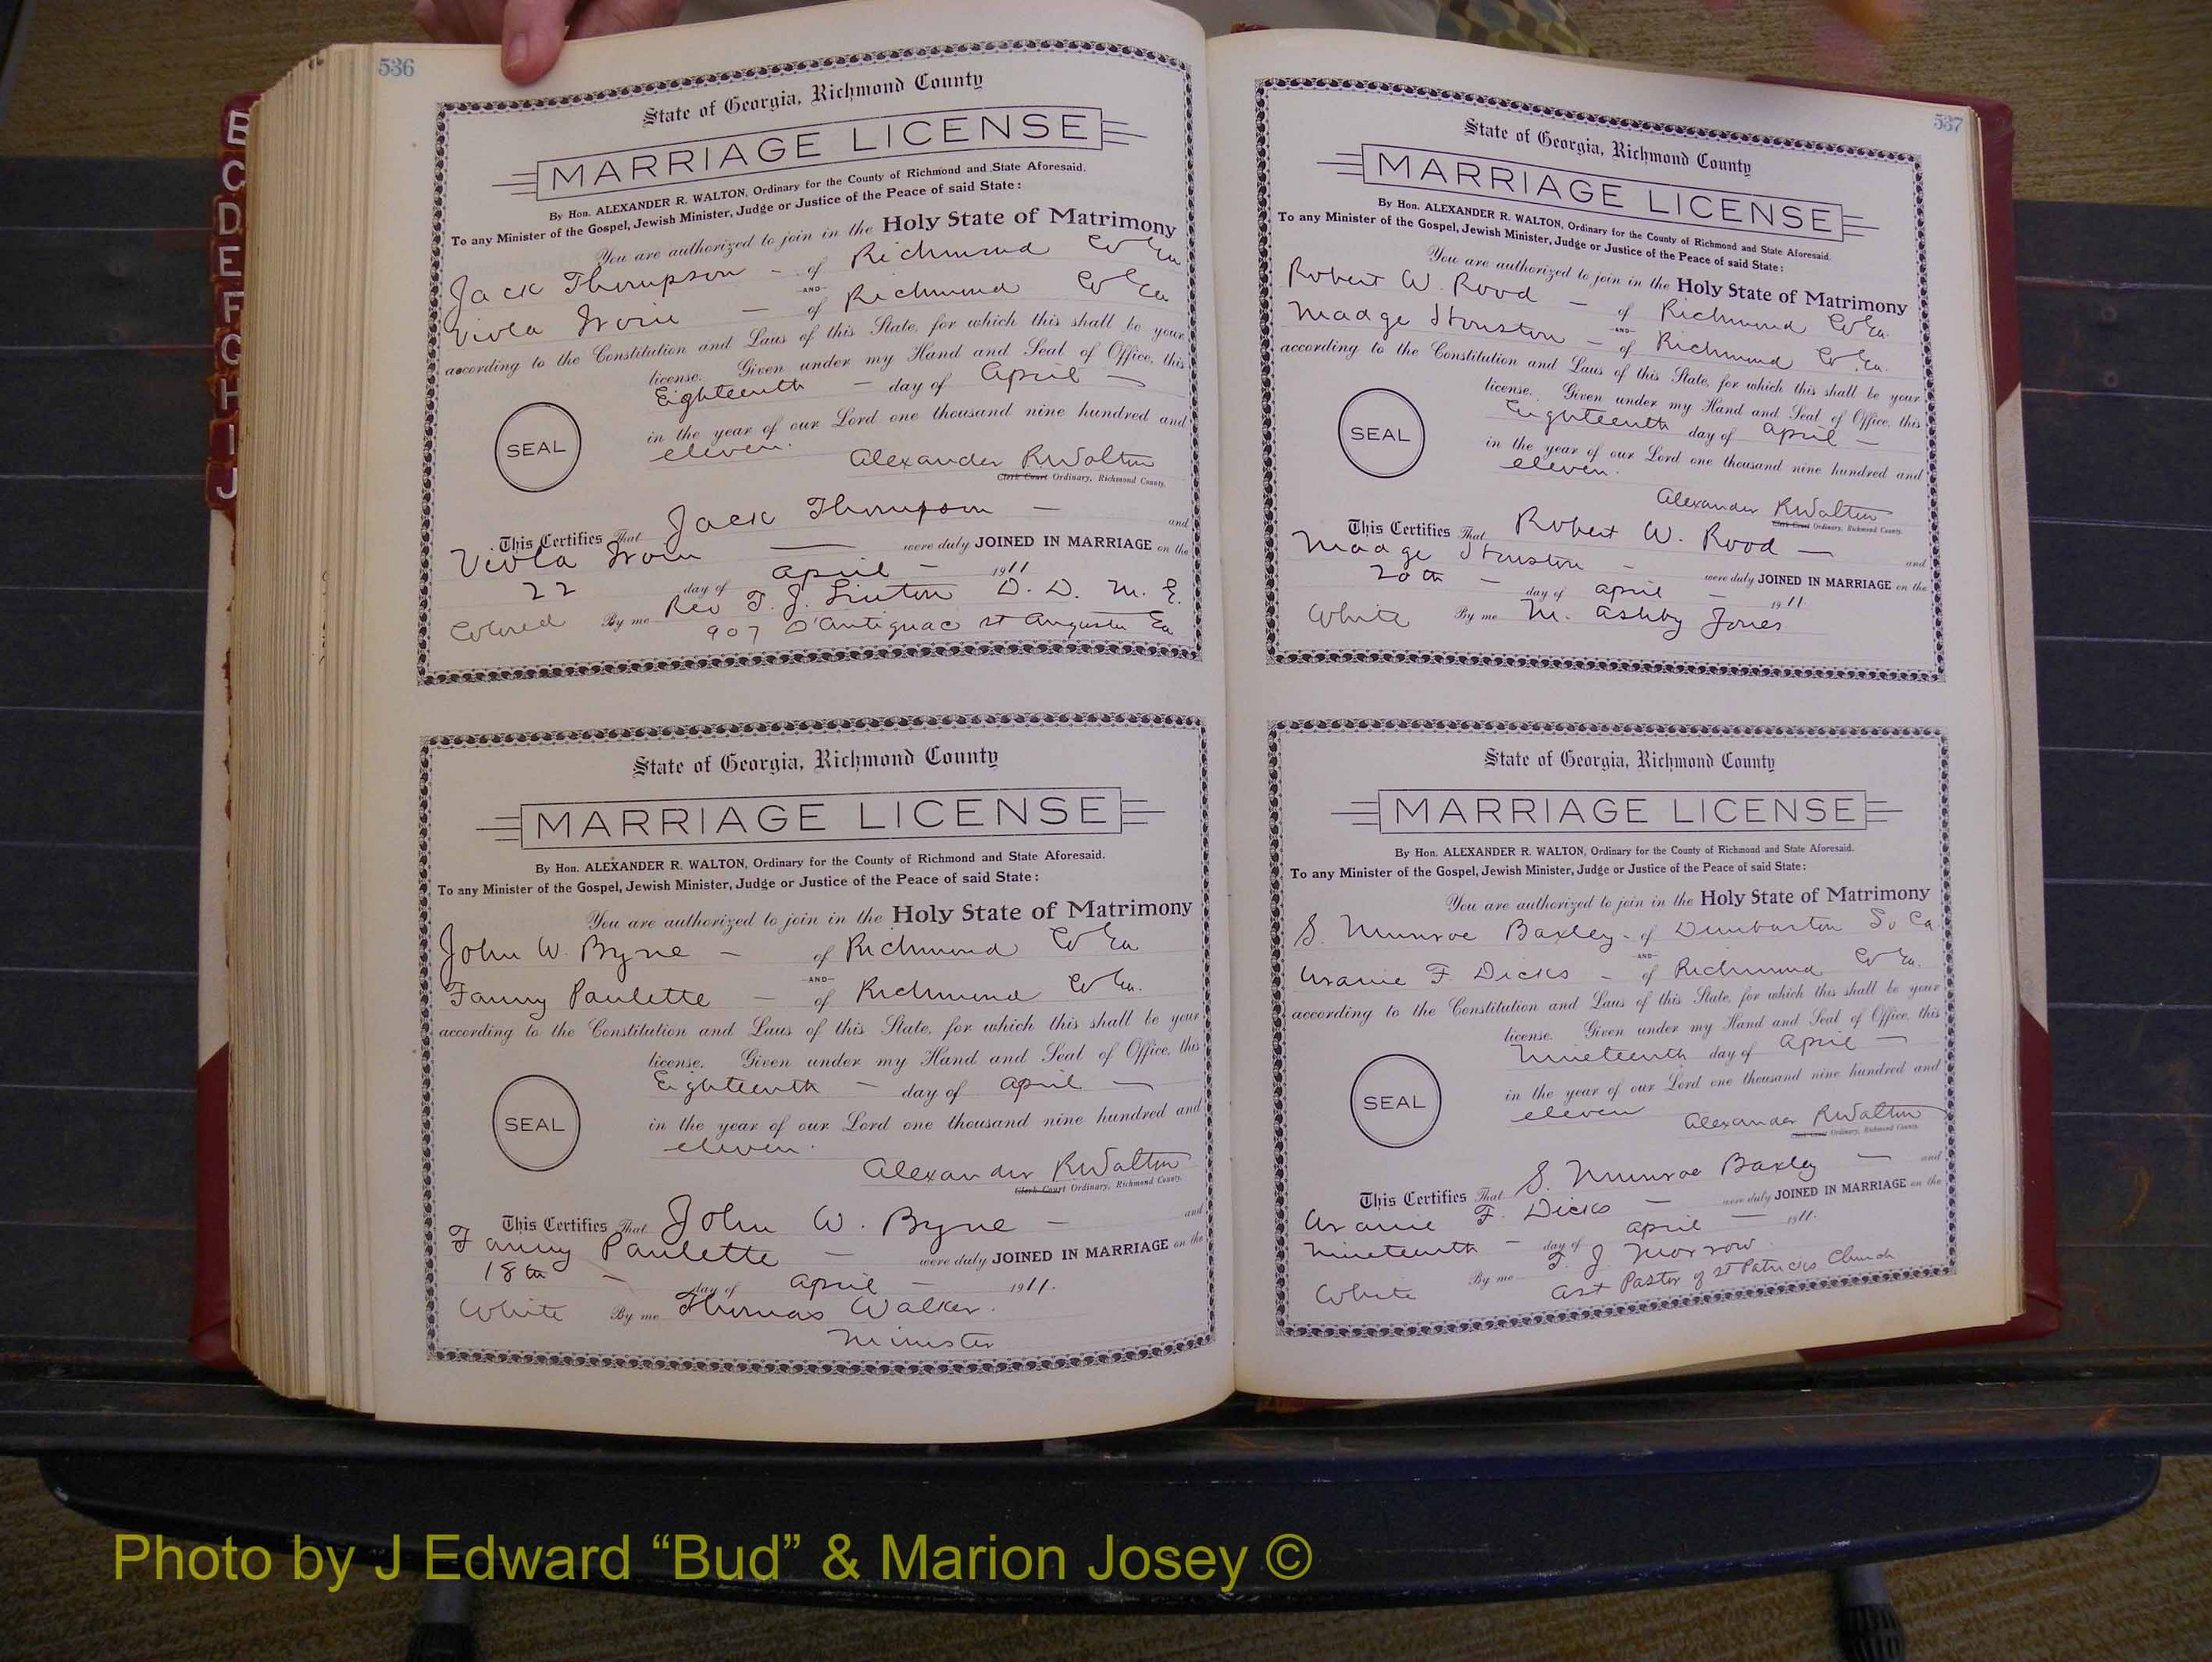 B
C
D
E
F
G
H
I
J
536
State of Georgia, Richmond County
MARRIAGE LICENSE
By Hon. ALEXANDER R. WALTON, Ordinary for the County of Richmond and State Aforesaid.
To any Minister of the Gospel, Jewish Minister, Judge or Justice of the Peace of said State:
You are authorized to join in the Holy State of Matrimony
Jack Thompson - of Richmond Co Ga
-AND-
Viola - of Richmond Co Ga
according to the Constitution and Laws of this State, for which this shall be your
license. Given under my Hand and Seal of Office, this
Eighteenth - day of April -
SEAL
in the year of our Lord one thousand nine hundred and
eleven.
Alexander R Walton
Clerk Court Ordinary, Richmond County.
This Certifies That Jack Thompson - and
Viola - were duly JOINED IN MARRIAGE on the
22 day of April - 1911
Colored By me Rev T. J. Linton D. D. M. E.
907 D'Antignac st Augusta Ga
State of Georgia, Richmond County
MARRIAGE LICENSE
By Hon. ALEXANDER R. WALTON, Ordinary for the County of Richmond and State Aforesaid.
To any Minister of the Gospel, Jewish Minister, Judge or Justice of the Peace of said State:
You are authorized to join in the Holy State of Matrimony
John W. Byne - of Richmond Co Ga
-AND-
Fanny Paulette - of Richmond Co Ga.
according to the Constitution and Laws of this State, for which this shall be your
license. Given under my Hand and Seal of Office, this
Eighteenth - day of April -
SEAL
in the year of our Lord one thousand nine hundred and
eleven.
Alexander R Walton
Clerk Court Ordinary, Richmond County.
This Certifies That John W. Byne - and
Fanny Paulette - were duly JOINED IN MARRIAGE on the
18th - day of April - 1911.
White By me Thomas Walker.
Minister
537
State of Georgia, Richmond County
MARRIAGE LICENSE
By Hon. ALEXANDER R. WALTON, Ordinary for the County of Richmond and State Aforesaid.
To any Minister of the Gospel, Jewish Minister, Judge or Justice of the Peace of said State:
You are authorized to join in the Holy State of Matrimony
Robert W. Rood - of Richmond Co Ga.
-AND-
Madge Houston - of Richmond Co Ga.
according to the Constitution and Laws of this State, for which this shall be your
license. Given under my Hand and Seal of Office, this
Eighteenth day of April -
SEAL
in the year of our Lord one thousand nine hundred and
eleven.
Alexander R Walton
Clerk Court Ordinary, Richmond County.
This Certifies That Robert W. Rood - and
Madge Houston - were duly JOINED IN MARRIAGE on the
20th - day of April - 1911.
White By me M. Ashby Jones
State of Georgia, Richmond County
MARRIAGE LICENSE
By Hon. ALEXANDER R. WALTON, Ordinary for the County of Richmond and State Aforesaid.
To any Minister of the Gospel, Jewish Minister, Judge or Justice of the Peace of said State:
You are authorized to join in the Holy State of Matrimony
S. Munroe Baxley - of Dunbarton So Ca
-AND-
Uranie F. Dicks - of Richmond Co Ga.
according to the Constitution and Laws of this State, for which this shall be your
license. Given under my Hand and Seal of Office, this
Nineteenth day of April -
SEAL
in the year of our Lord one thousand nine hundred and
eleven
Alexander R Walton
Clerk Court Ordinary, Richmond County.
This Certifies That S. Munroe Baxley - and
Uranie F. Dicks - were duly JOINED IN MARRIAGE on the
Nineteenth - day of April - 1911.
White By me F. J. Morrow.
Ast Pastor of St Patricks Church
Photo by J Edward “Bud” & Marion Josey ©